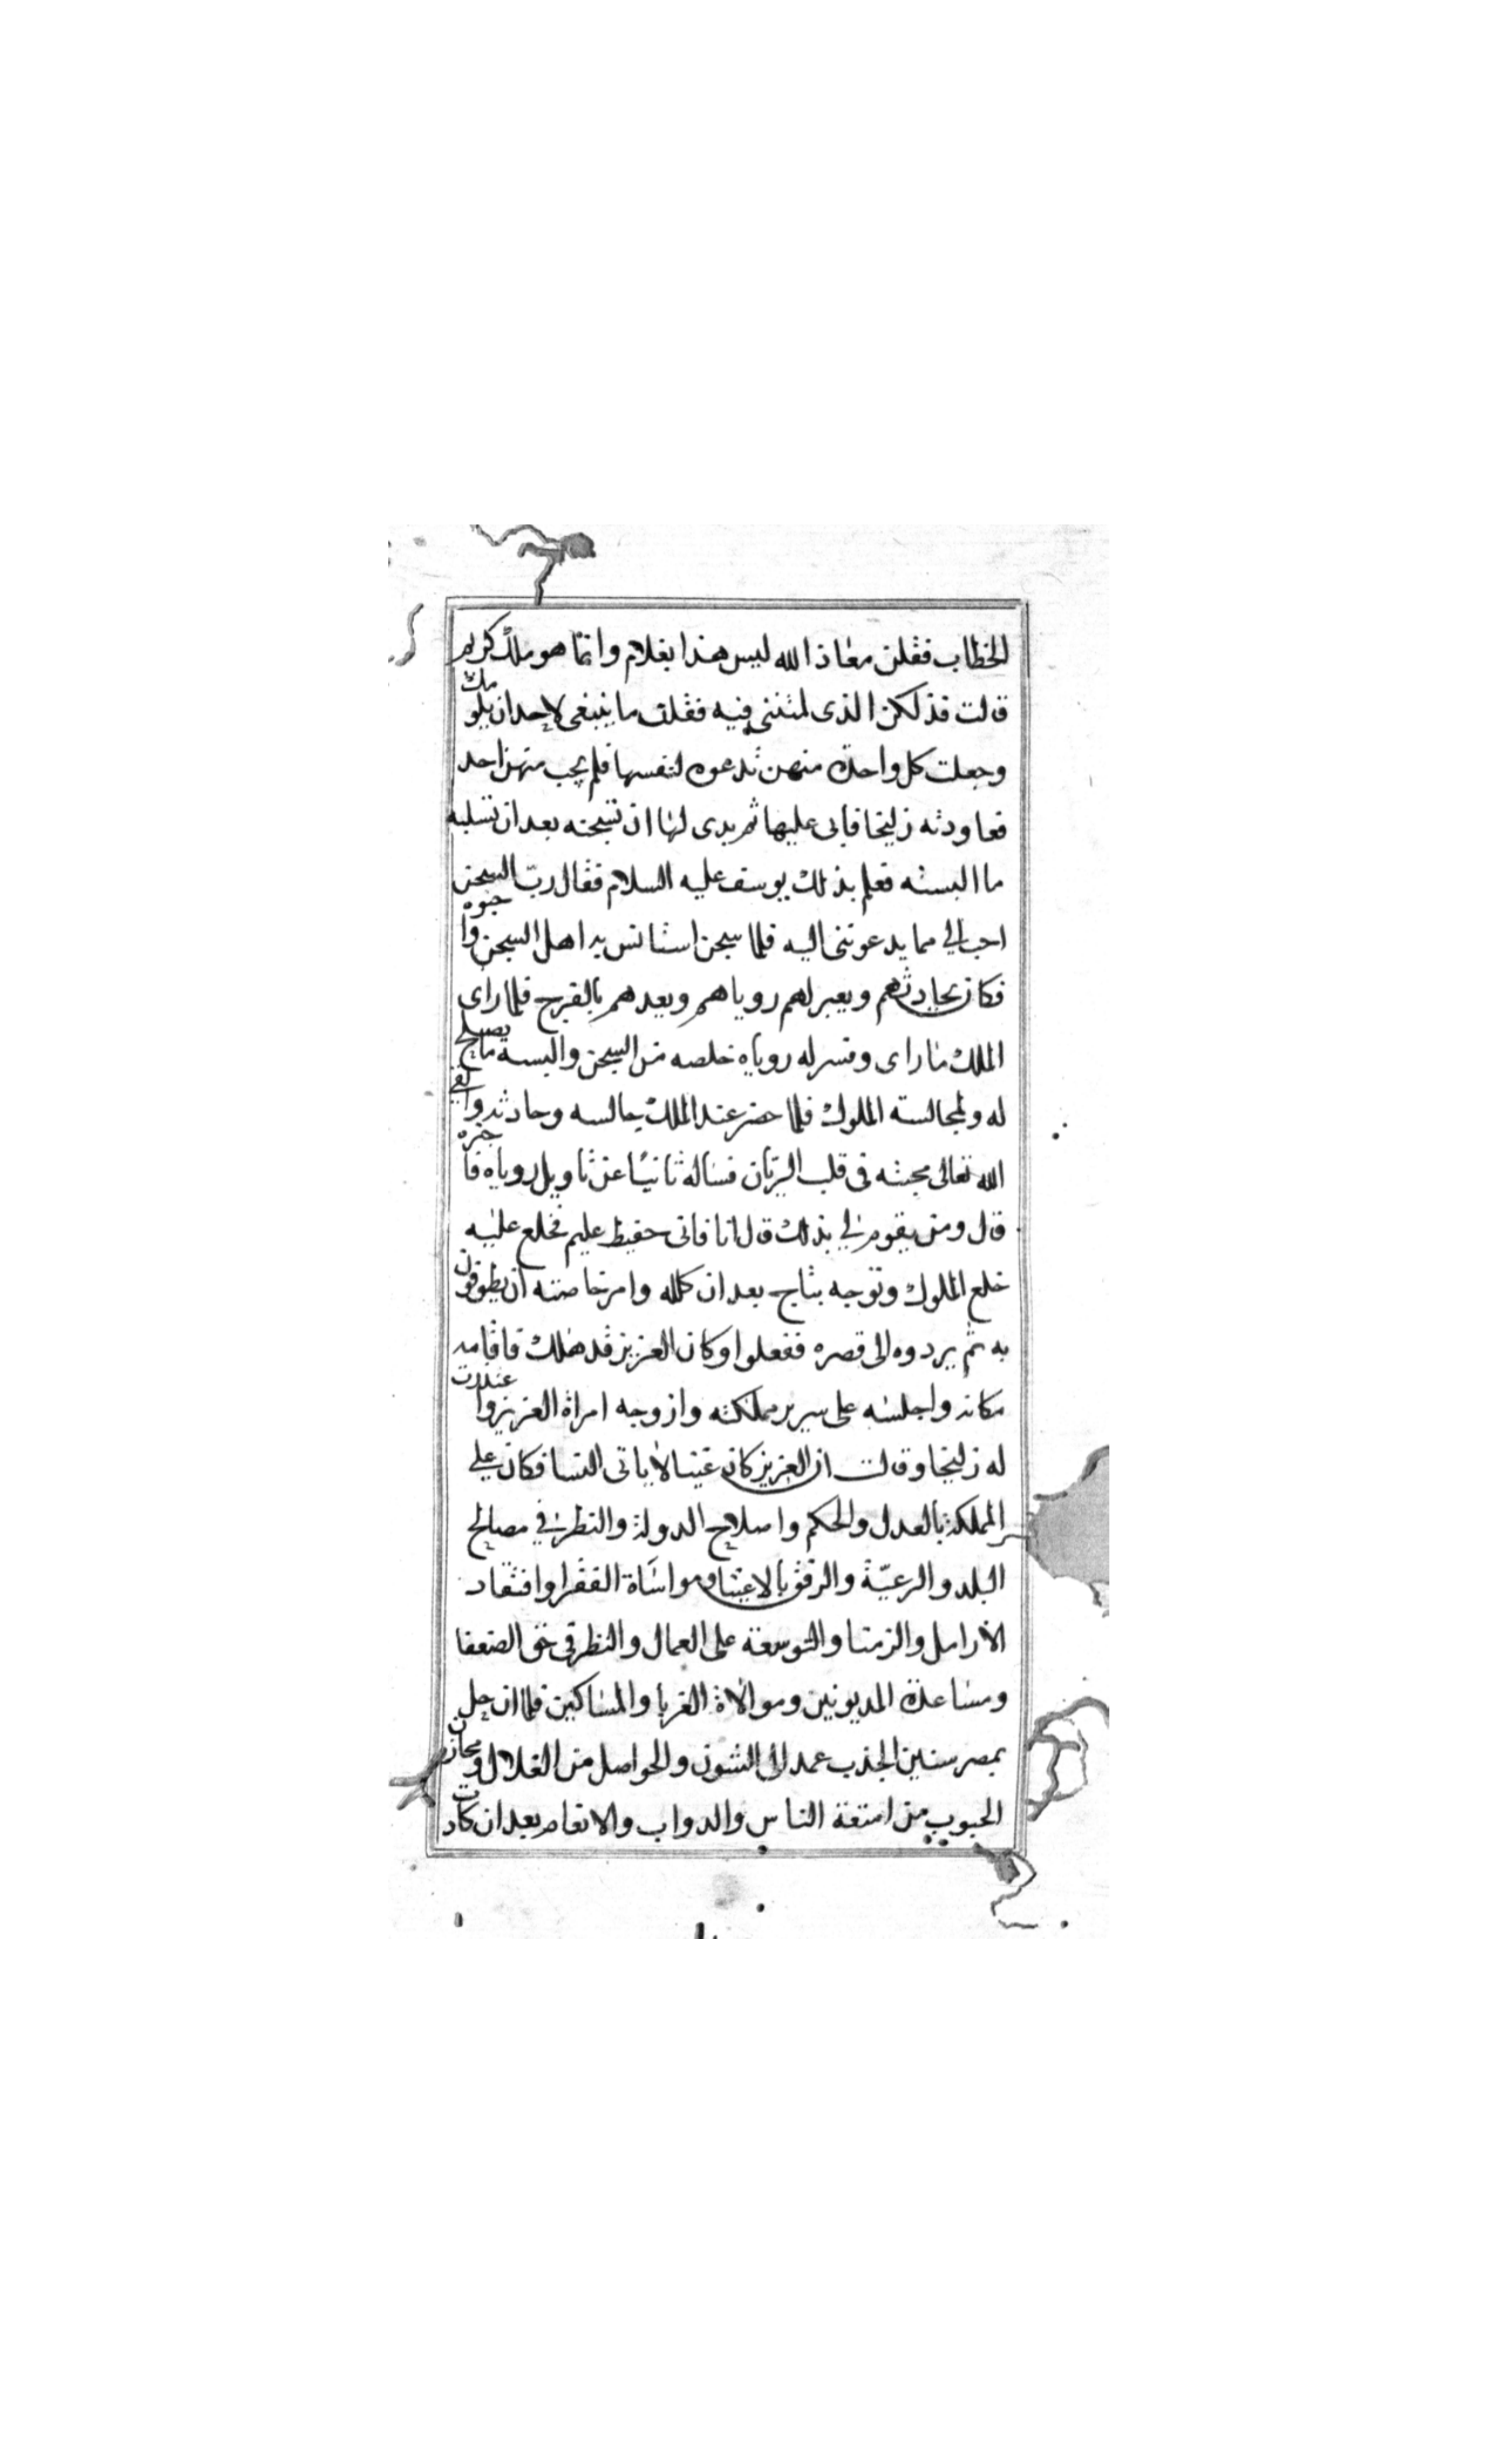 الخطاب فقلن معاذ الله ليس هذا بغلام وانما هو ملك كريم
قالت فذلكن الذى لمتننى فيه فقلن ما ينبغى لاحد ان يلومك
وجعلت كل واحدة منهن تدعوه لنفسها فلم يجب منهن احد
فعاودته زليخا فابى عليها ثم بدى لها ان تسجنه بعد ان تسلبه
ما البسته فعلم بذلك يوسف عليه السلام فقال رب السجن
احب الي مما يدعوننى اليه فلما سجن استانس به اهل السجن واحبوه
فكان يحادثهم ويعبر لهم روياهم ويعدهم بالفرج فلما راى
الملك ما راى وفسر له روياه خلصه من السجن والبسه ما يصلح
له ولمجالسته الملوك فلما حضر عند الملك جالسه وحادثه والقي
الله تعالى محبته فى قلب الريان فساله ثانيًا عن تاويل روياه فاخبره
قال ومن يقوم لي بذلك قال انا فانى حفيظ عليم فخلع عليه
خلع الملوك وتوجه بتاج بعد ان كلله وامر خاصته ان يطوفون
به ثم يردوه الى قصره ففعلوا وكان العزيز قد هلك فاقامه
مكانه واجلسه على سرير مملكته وازوجه امراة العزيز واعتذرت
له زليخا وقالت ان العزيز كان عنينا لا ياتى النسا فكان علي
المملكة بالعدل والحكم واصلاح الدولة والنظر في مصالح
البلد والرعيّة والرفق بالاغنيا ومواساة الفقرا وافتقاد
الارامل والزمنا والتوسعة على العمال والنظر فى حق الضعفا
ومساعدة المديونين وموالاة الغربا والمساكين فلما ان حل
بمصر سنين الجذب عمد الى الشون والحواصل من الغلال ومخازن
الحبوب من امتعة الناس والدواب والانعام بعد ان كادت